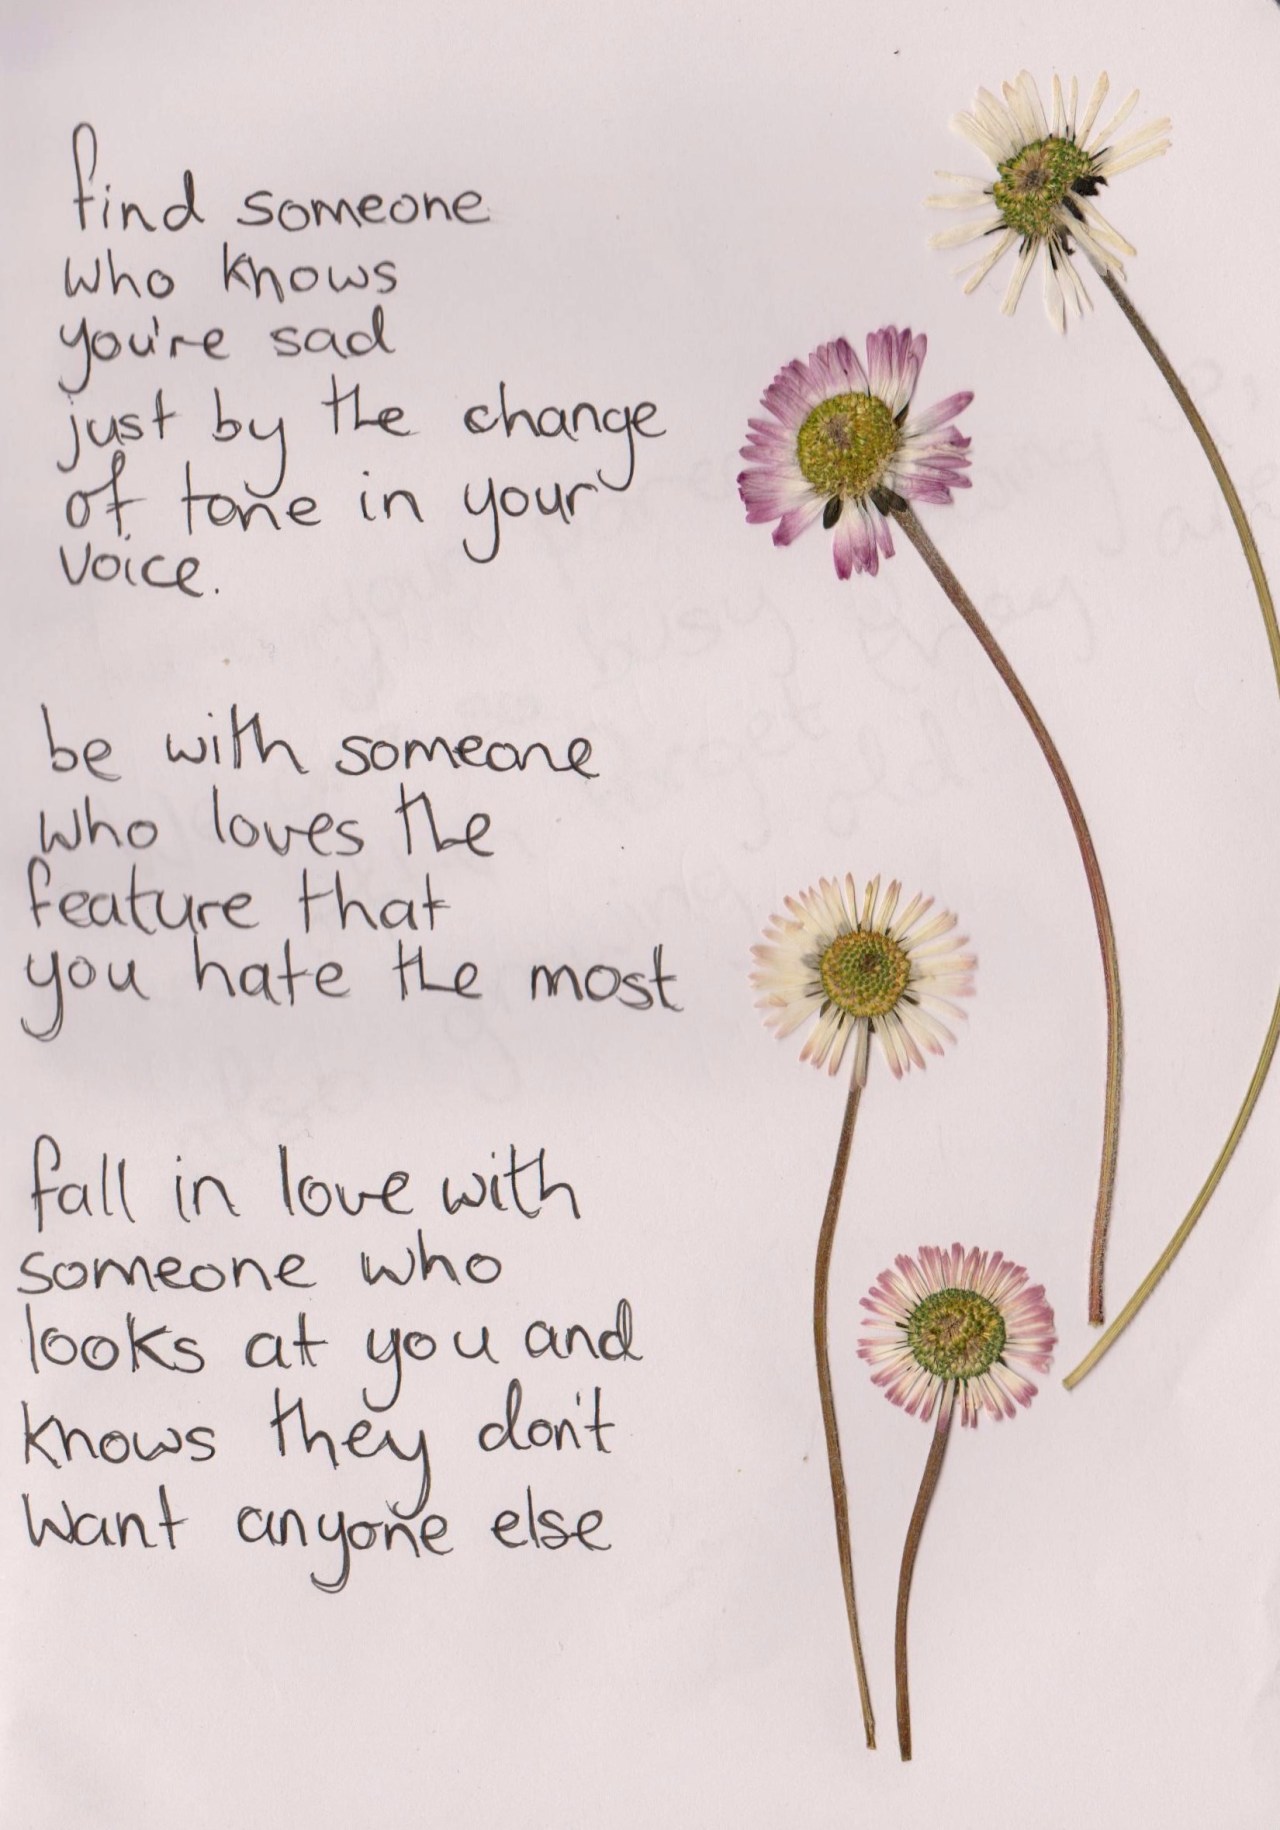 find someone
who knows
you're sad
just by the change
of tone in your
voice.
be with someone
who loves the
feature that
you hate the most
fall in love with
someone who
looks at you and
knows they don't
want anyone else